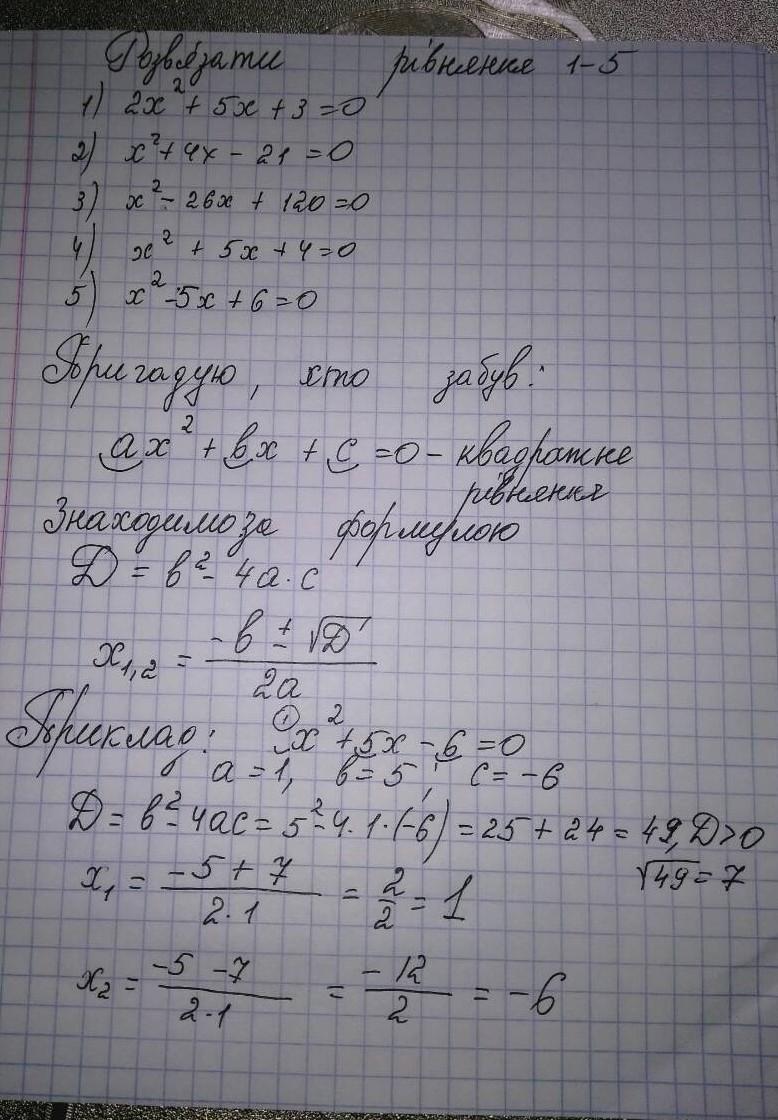 Розв'язати рівняння 1-5
1) 2x² + 5x + 3 = 0
2) x² + 4x - 21 = 0
3) x² - 26x + 120 = 0
4) x² + 5x + 4 = 0
5) x² - 5x + 6 = 0
Пригадую, хто забув:
ax² + bx + c = 0 - квадратне
рівняння
Знаходимо за формулою
D = b² - 4a·c
x₁,₂ = (-b ± √D) / 2a
Приклад: ① x² + 5x - 6 = 0
a = 1, b = 5; c = -6
D = b² - 4ac = 5² - 4·1·(-6) = 25 + 24 = 49, D>0
√49 = 7
x₁ = (-5 + 7) / (2·1) = 2/2 = 1
x₂ = (-5 - 7) / (2·1) = -12/2 = -6